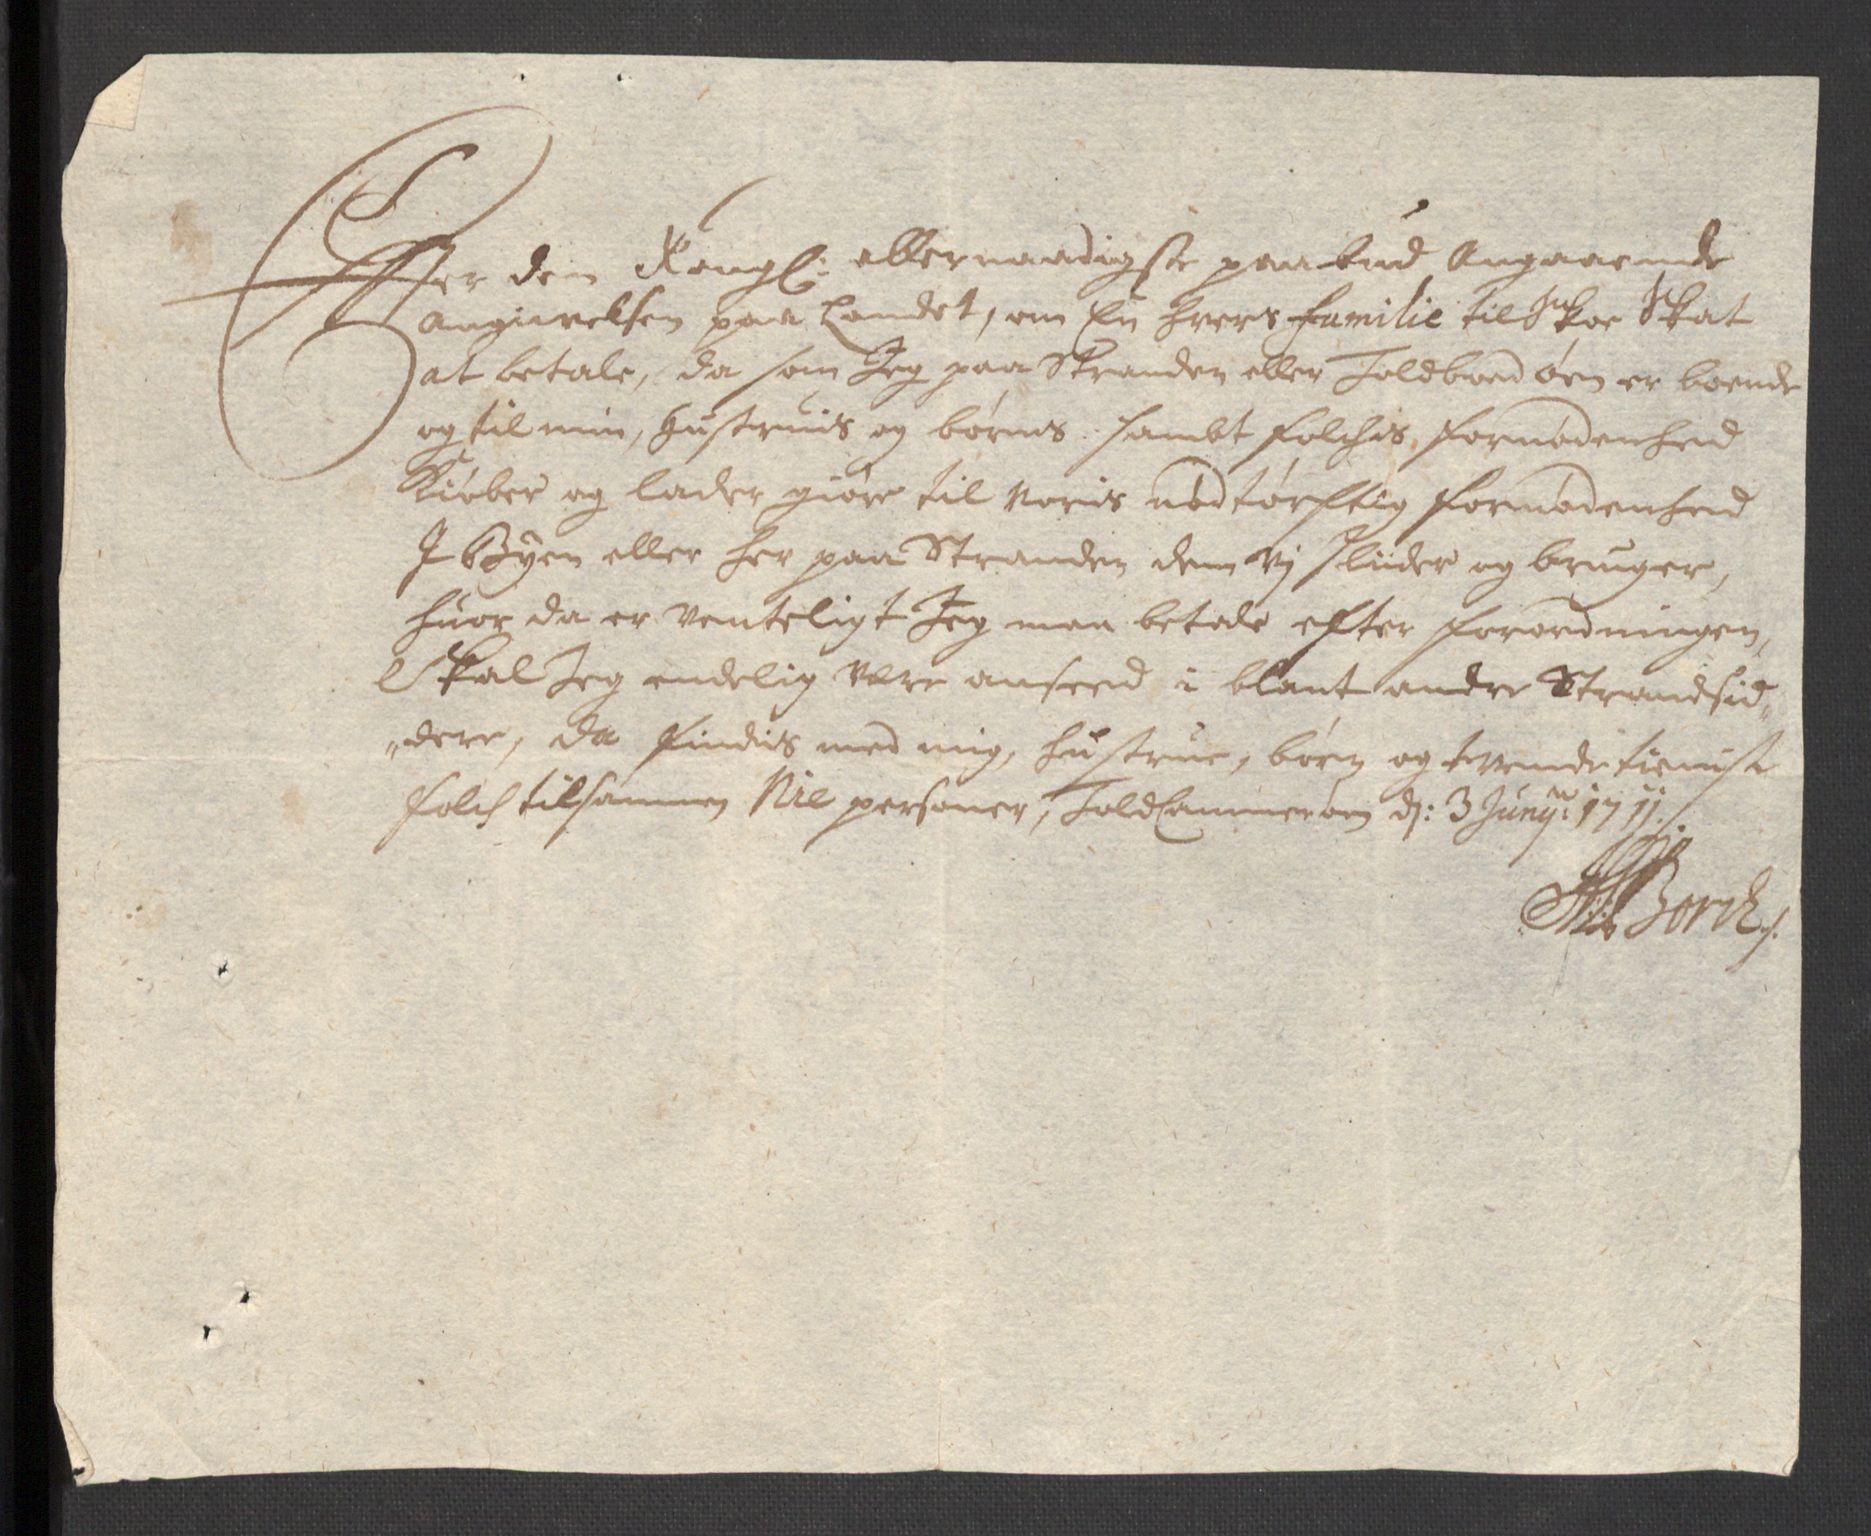 Efter den Kongl: allernaadigste paabud Angaaende
angivelsen paa Landet, om En hvers familie til Skoe Skat
at betale, da som Jeg paa Stranden eller Toldboed øen er boende
og til min, hustruis og børns sambt folchis fornødenhed
Kiøber og lader giøre til voris nødtørfftig fornødenhed
J Byen eller her paa Stranden dem Vj sliider og bruger,
huor da er venteligt Jeg maa betale efter forordningen,
Skal Jeg endelig være anseed i blant andre Strandsid„
„dere, da findis med mig, hustrue, børn og tvende tieniste
folch tilsammen Nie personer, Toldcammerøen dj: 3 Junij: 1711.
Borch